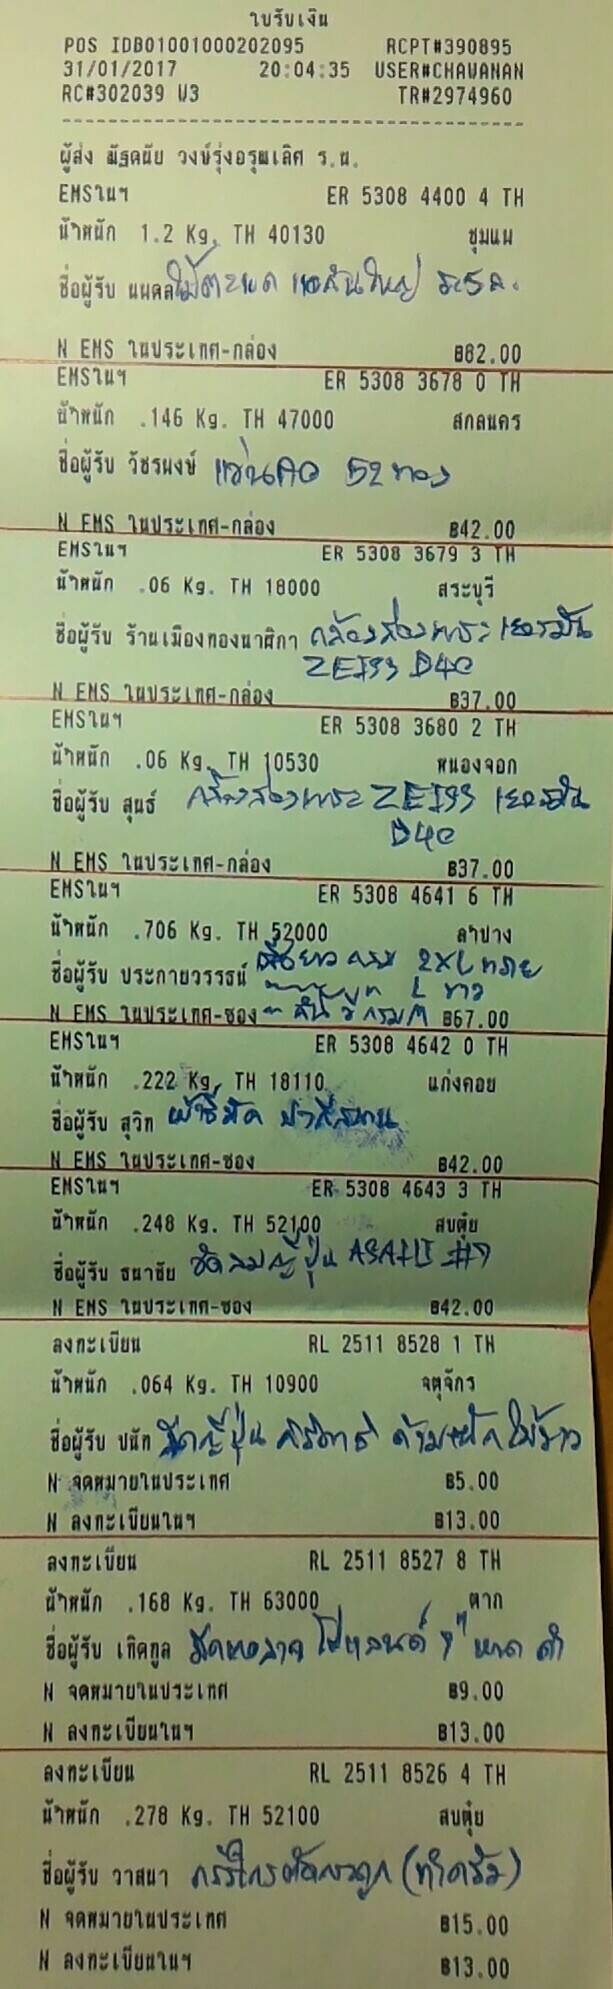 ใบรับเงิน
POS IDB01001000202095 RCPT#390895
31/01/2017 20:04:35 USER#CHAWANAN
RC#302039 W3 TR#2974960
ผู้ส่ง ณัฐดนัย วงษ์รุ่งอรุณเลิศ ร.น.
EMSในฯ ER 5308 4400 4 TH
น้ำหนัก 1.2 Kg. TH 40130 ชุมแพ
ชื่อผู้รับ นพดล
N EMS ในประเทศ-กล่อง ฿82.00
EMSในฯ ER 5308 3678 0 TH
น้ำหนัก .146 Kg. TH 47000 สกลนคร
ชื่อผู้รับ วัชรพงษ์ 52 ทอง
N EMS ในประเทศ-กล่อง ฿42.00
EMSในฯ ER 5308 3679 3 TH
น้ำหนัก .06 Kg. TH 18000 สระบุรี
ชื่อผู้รับ ร้านเมืองทองนาฬิกา กล้องส่องพระ เยอรมัน
ZEISS D40
N EMS ในประเทศ-กล่อง ฿37.00
EMSในฯ ER 5308 3680 2 TH
น้ำหนัก .06 Kg. TH 10530 หนองจอก
ชื่อผู้รับ สุนธ์ กล้องส่องพระ ZEISS เยอรมัน
D40
N EMS ในประเทศ-กล่อง ฿37.00
EMSในฯ ER 5308 4641 6 TH
น้ำหนัก .706 Kg. TH 52000 ลำปาง
ชื่อผู้รับ ประกายวรรธน์ 2XL ทราย
L ขาว
N EMS ในประเทศ-ซอง ฿67.00
EMSในฯ ER 5308 4642 0 TH
น้ำหนัก .222 Kg. TH 18110 แก่งคอย
ชื่อผู้รับ สุวิท ปากีสถาน
N EMS ในประเทศ-ซอง ฿42.00
EMSในฯ ER 5308 4643 3 TH
น้ำหนัก .248 Kg. TH 52100 สบตุ๋ย
ชื่อผู้รับ ธนาชัย ญี่ปุ่น ASAHI #7
N EMS ในประเทศ-ซอง ฿42.00
ลงทะเบียน RL 2511 8528 1 TH
น้ำหนัก .064 Kg. TH 10900 จตุจักร
ชื่อผู้รับ ปนัท มีดญี่ปุ่น
N จดหมายในประเทศ ฿5.00
N ลงทะเบียนในฯ ฿13.00
ลงทะเบียน RL 2511 8527 8 TH
น้ำหนัก .168 Kg. TH 63000 ตาก
ชื่อผู้รับ เทิดทูล ดำ
N จดหมายในประเทศ ฿9.00
N ลงทะเบียนในฯ ฿13.00
ลงทะเบียน RL 2511 8526 4 TH
น้ำหนัก .278 Kg. TH 52100 สบตุ๋ย
ชื่อผู้รับ วาสนา กรรไกรตัดกระดูก (ทำครัว)
N จดหมายในประเทศ ฿15.00
N ลงทะเบียนในฯ ฿13.00